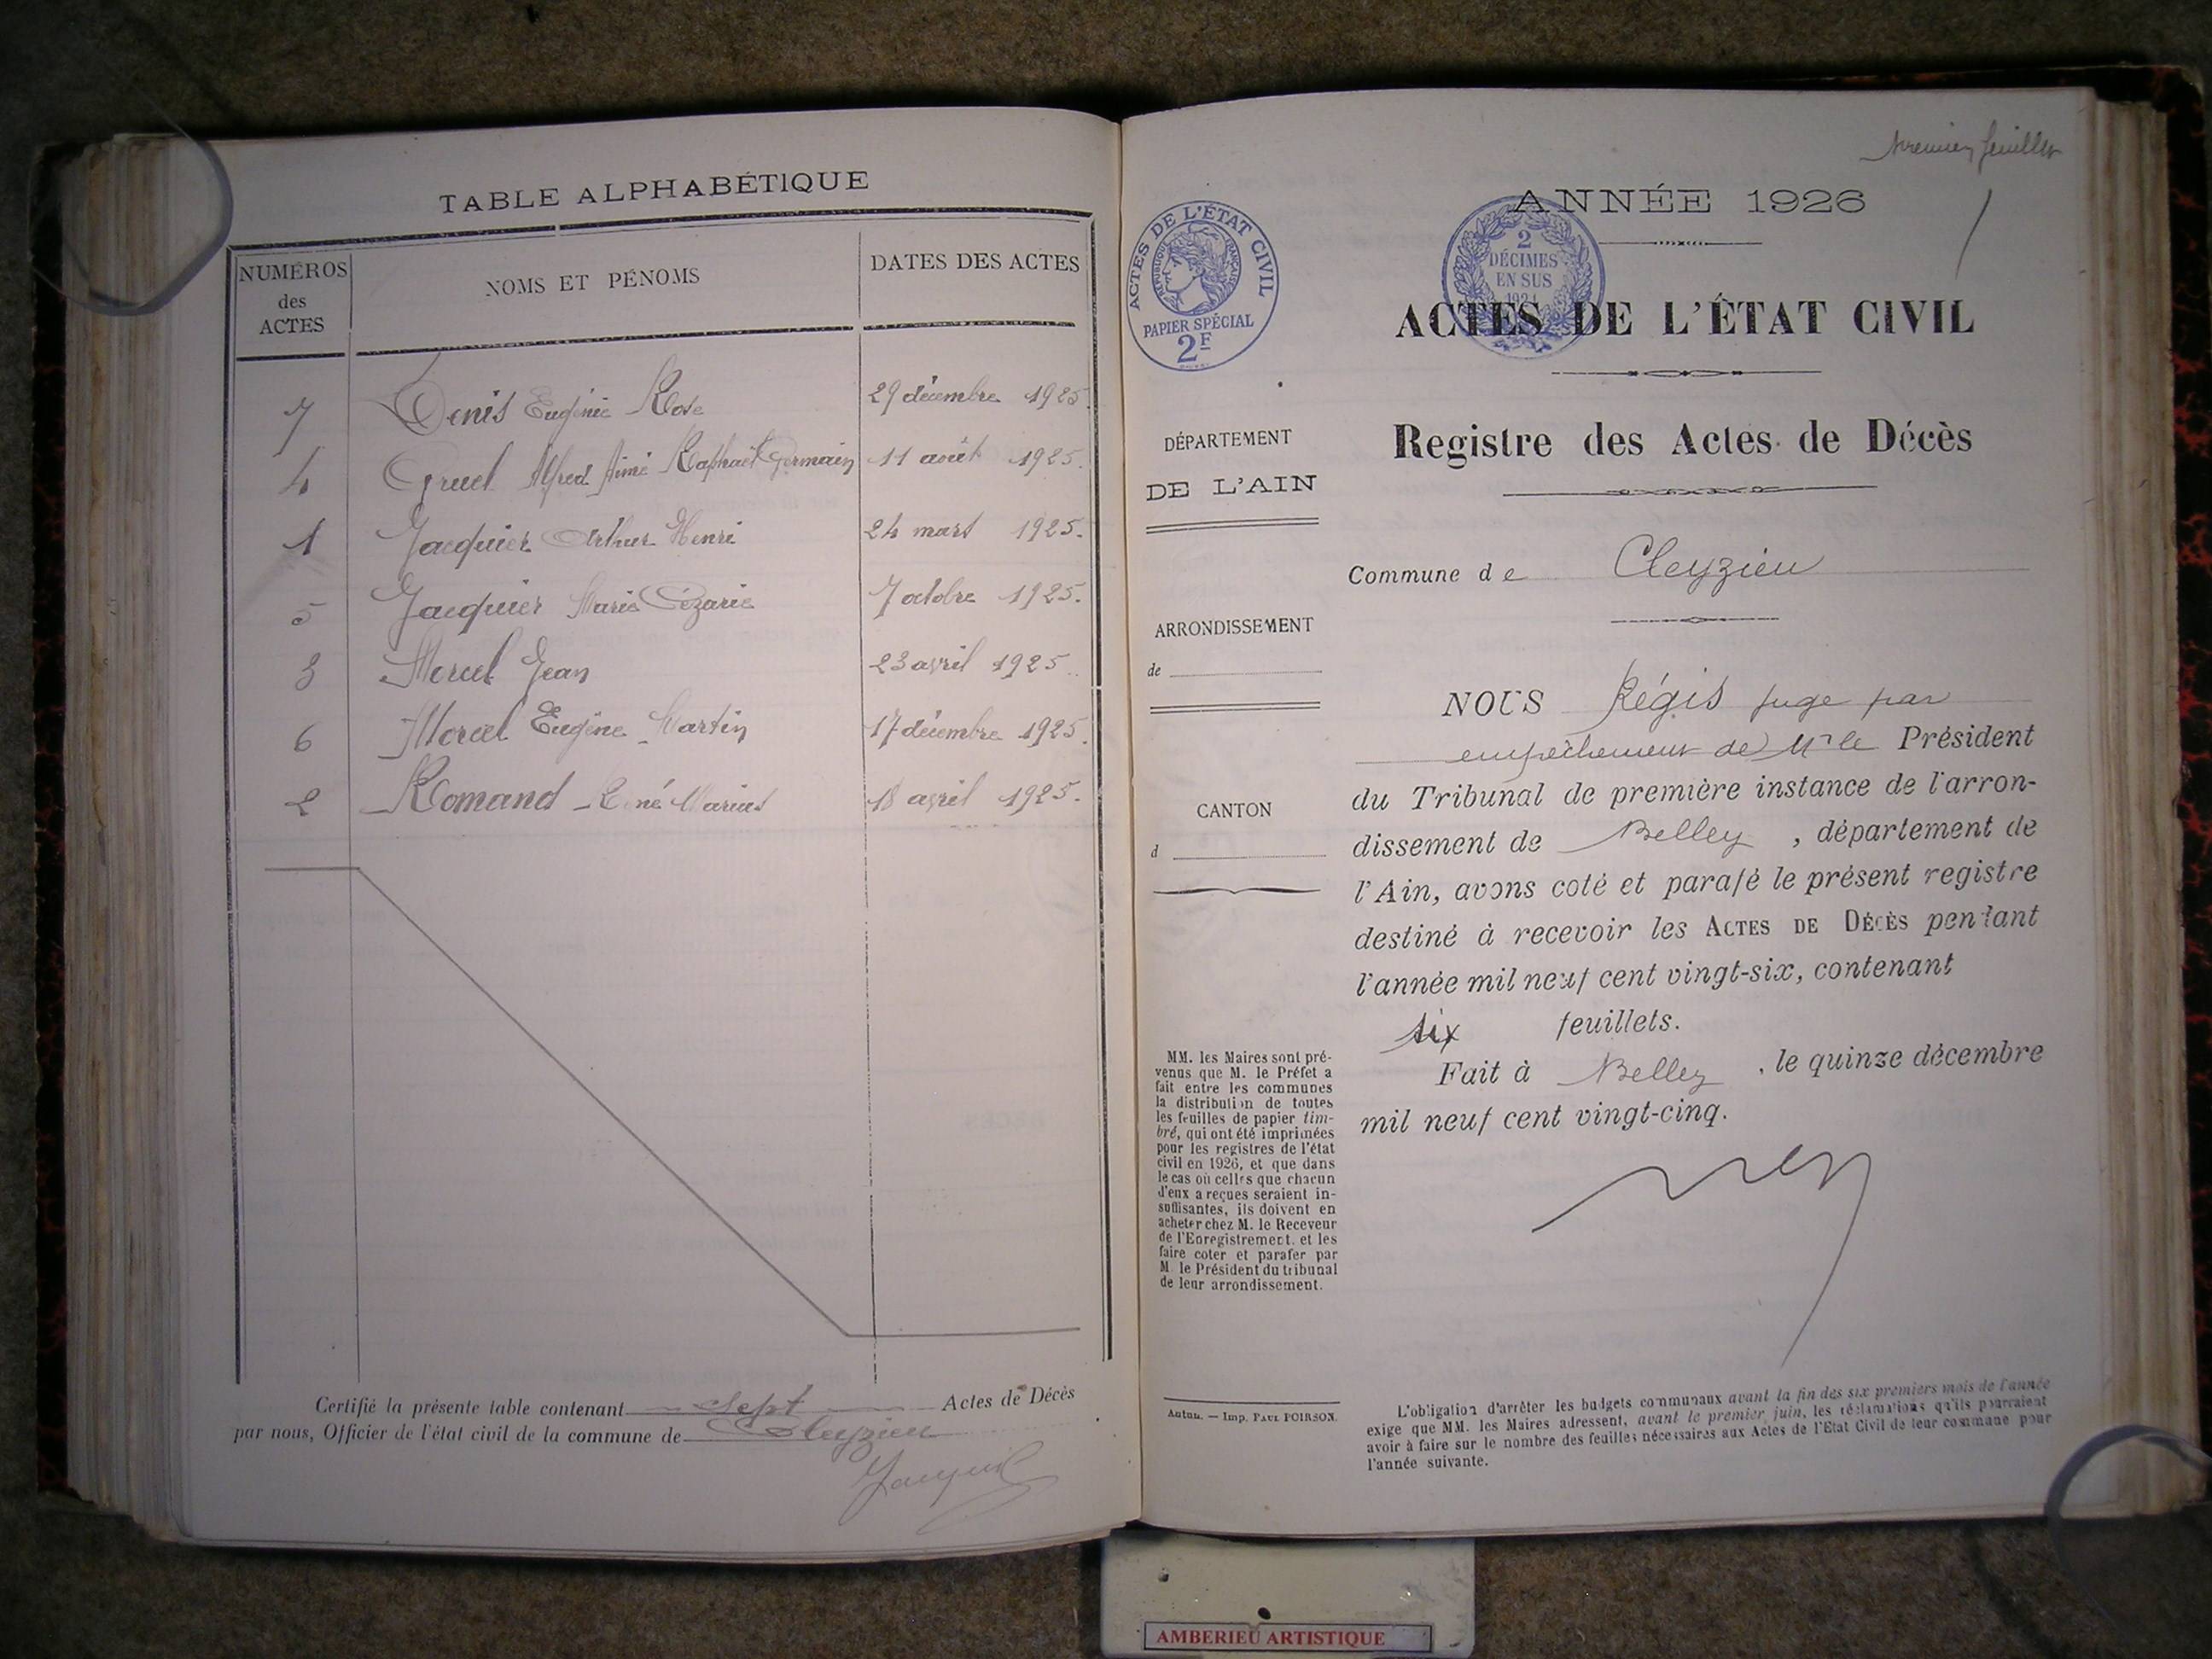 TABLE ALPHABÉTIQUE
NUMÉROS des ACTES
NOMS ET PÉNOMS
DATES DES ACTES
7 Denis Eugénie Rose 29 décembre 1925
4 Gruel Alfred Aimé Raphaël Germain 11 août 1925.
1 Jacquier Arthur Henri 24 mars 1925.
5 Jacquier Marie Cézarie 7 octobre 1925.
3 Morcel Jean 23 avril 1925.
6 Morcel Eugène Martin 17 décembre 1925.
2 Romand René Marius 18 avril 1925.
Certifié la présente table contenant sept Actes de Décès
par nous, Officier de l'état civil de la commune de Cleyzieu
premier feuillet
ANNÉE 1926
ACTES DE L'ÉTAT CIVIL
RÉPUBLIQUE FRANÇAISE
PAPIER SPÉCIAL
2F
2
DÉCIMES
EN SUS
1921
ACTES DE L'ÉTAT CIVIL
Registre des Actes de Décès
DÉPARTEMENT
DE L'AIN
ARRONDISSEMENT
de
CANTON
d
MM. les Maires sont pré-
venus que M. le Préfet a
fait entre les communes
la distribution de toutes
les feuilles de papier tim-
bré, qui ont été imprimées
pour les registres de l'état
civil en 1926, et que dans
le cas où celles que chacun
d'eux a reçues seraient in-
suffisantes, ils doivent en
acheter chez M. le Receveur
de l'Enregistrement. et les
faire coter et parafer par
M. le Président du tribunal
de leur arrondissement.
Autun. — Imp. PAUL POIRSON.
Commune de Cleyzieu
NOUS Régis juge par
empêchement de Mr le Président
du Tribunal de première instance de l'arron-
dissement de Belley, département de
l'Ain, avons coté et parafé le présent registre
destiné à recevoir les ACTES DE DÉCÈS pendant
l'année mil neuf cent vingt-six, contenant
six feuillets.
Fait à Belley, le quinze décembre
mil neuf cent vingt-cinq.
L'obligation d'arrêter les budgets communaux avant la fin des six premiers mois de l'année
exige que MM. les Maires adressent, avant le premier juin, les réclamations qu'ils pourraient
avoir à faire sur le nombre des feuilles nécessaires aux Actes de l'Etat Civil de leur commune pour
l'année suivante.
AMBERIEU ARTISTIQUE